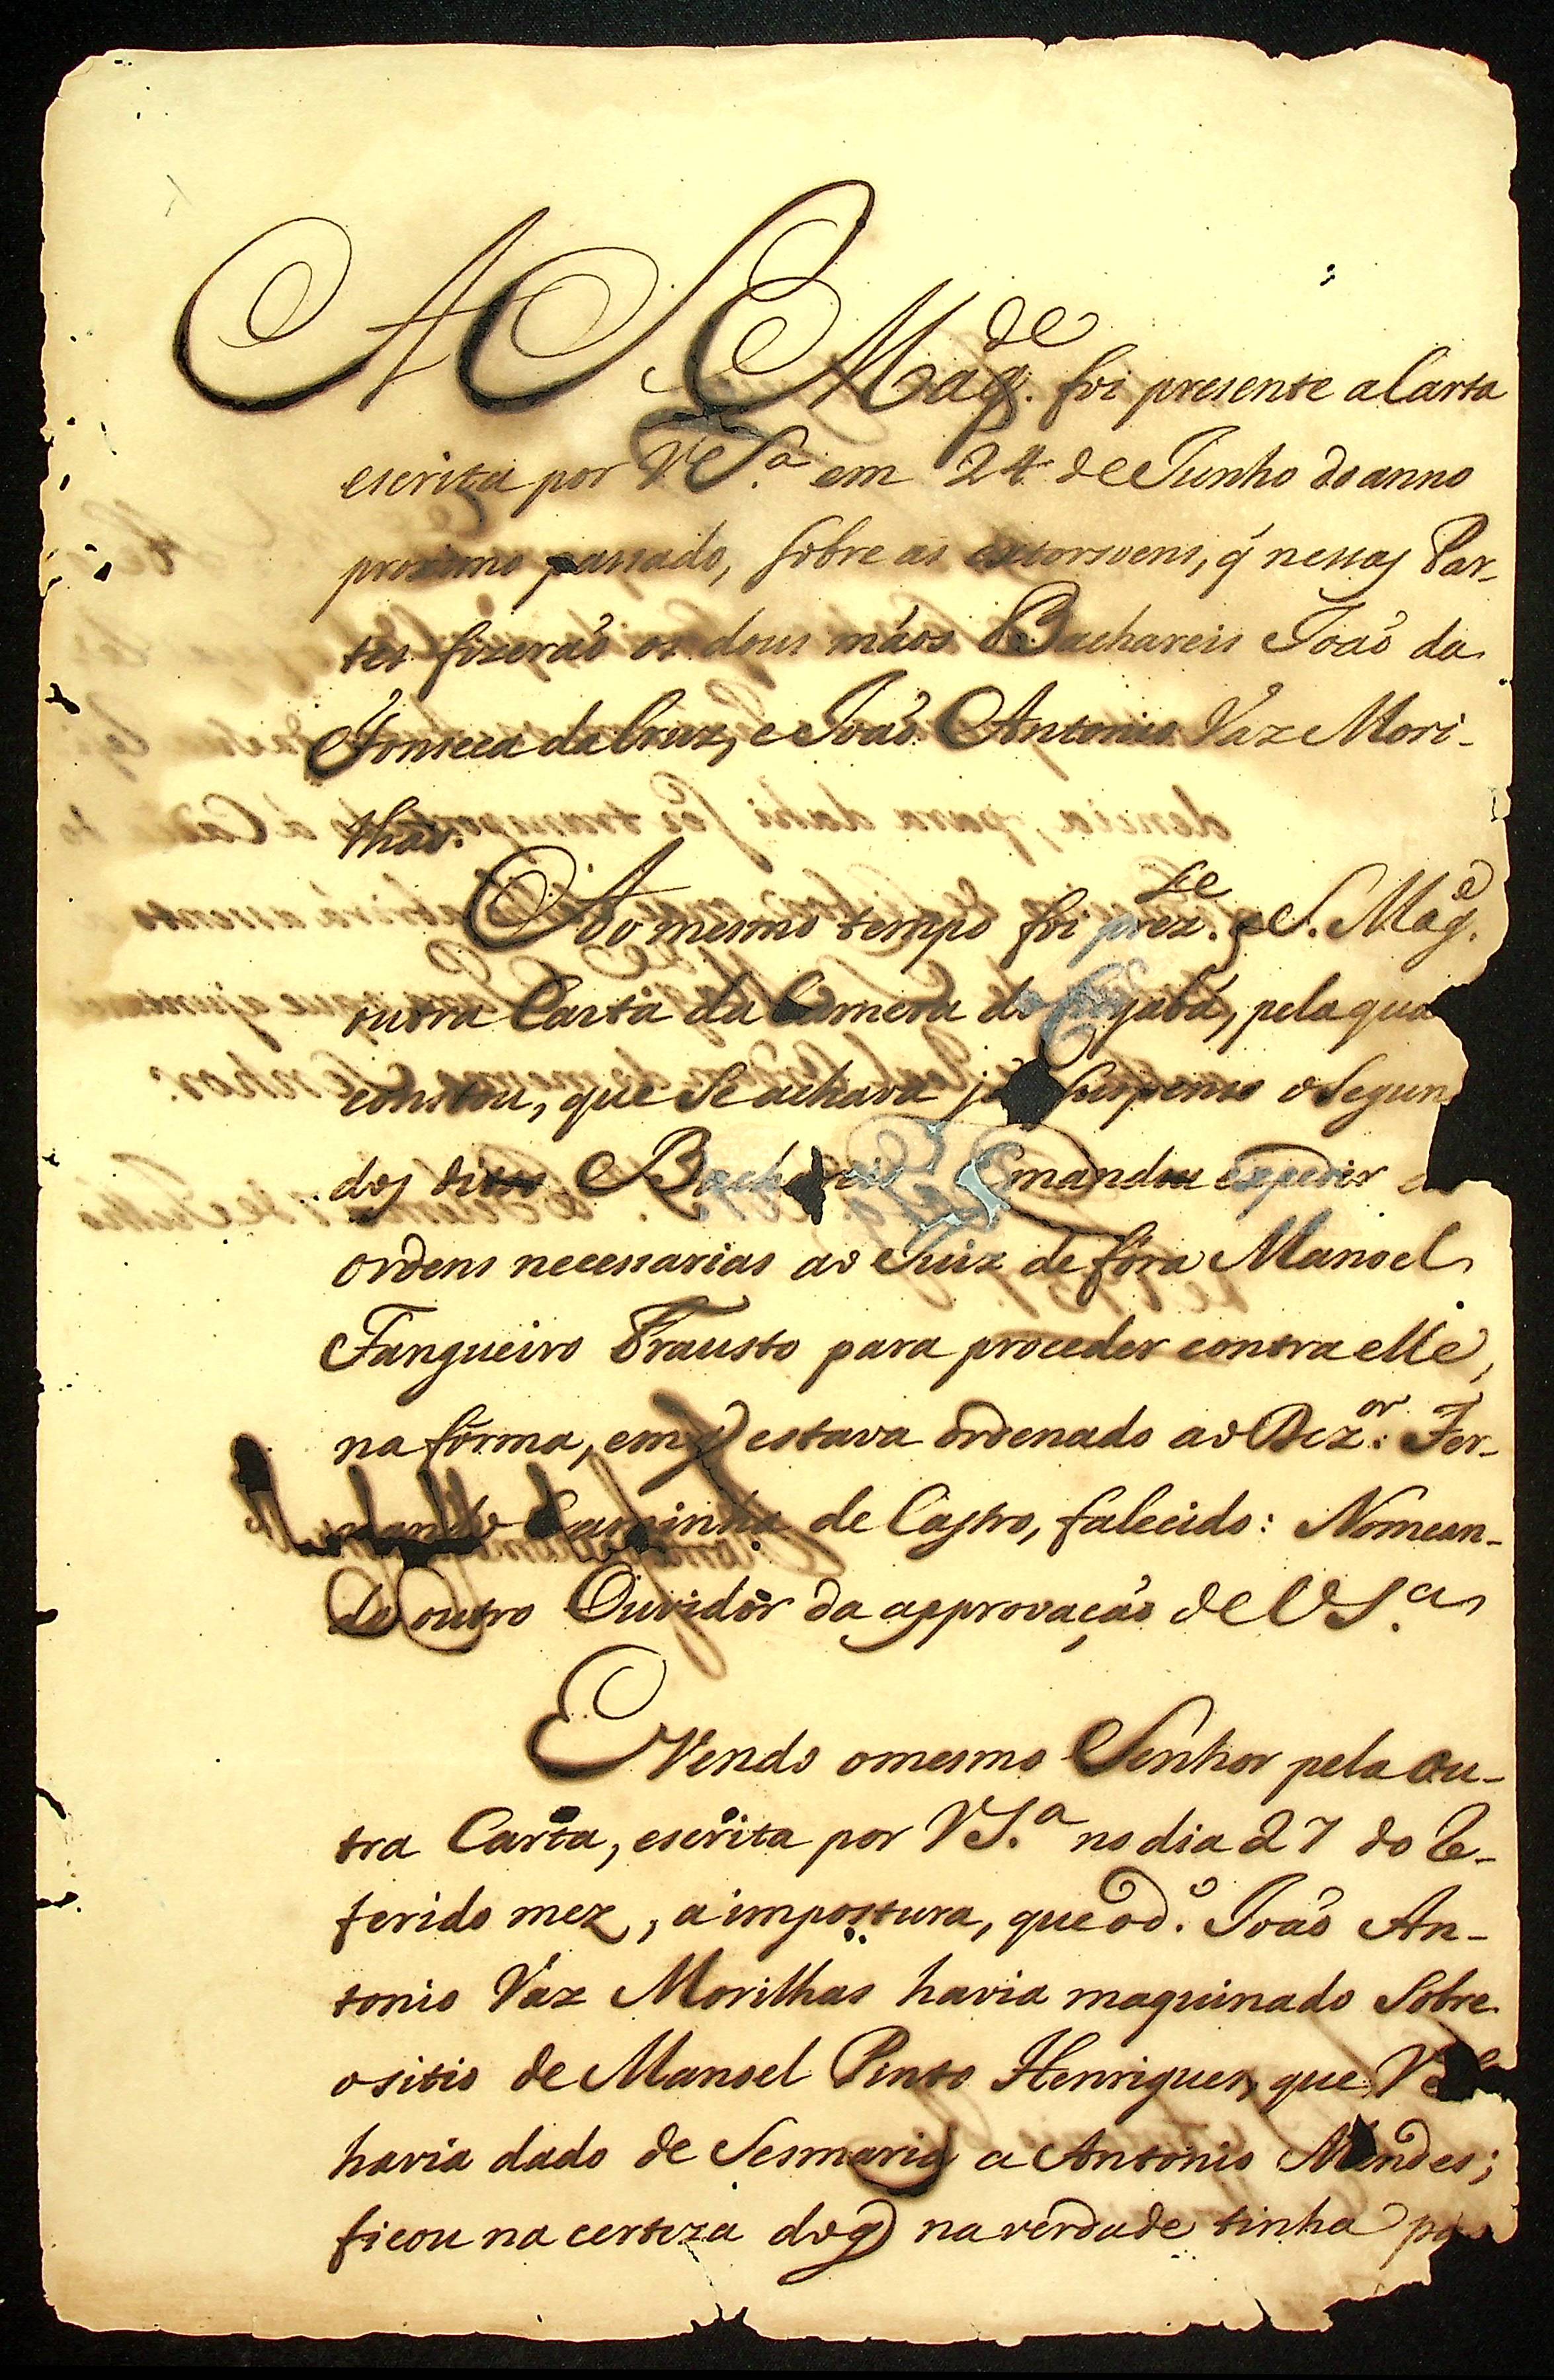 A S. Mag.de foi presente a Carta
escrita por V. S.a em 24 de Junho do anno
proximo passado, sobre as extorsoens, q̃ nessas Par-
tes fizeraõ os dous máos Bachareis Joaõ da
Fonseca da Cruz, e Joaõ Antonio Váz Mori-
lhas.
Ao mesmo tempo foi prez.te a S. Mag.e
outra Carta da Camera do Cuyabá, pela qua
constou, que Se achava já suspenso o Segun
dos ditos Bachareis E mandou expedir as
ordens necessarias ao Juiz de fóra Manoel
Fangueiro Frausto para proceder contra elle,
na fórma, em q̃ estava ordenado ao Dez.or Fer-
nando Caminha de Castro, falecido: Nomean-
do outro Ouvidor da approvaçaõ de V S.a
E Vendo o mesmo Senhor pela ou-
tra Carta, escrita por V S.a no dia 27 do re-
ferido mez, a impostura, que o d.o Joaõ An-
tonio Váz Morilhas havia maquinado Sobre
o sitio de Manoel Pinto Henriques, que V S
havia dado de Sesmaria a Antonio Mendes;
ficou na certeza do q̃ na verdade tinha pas